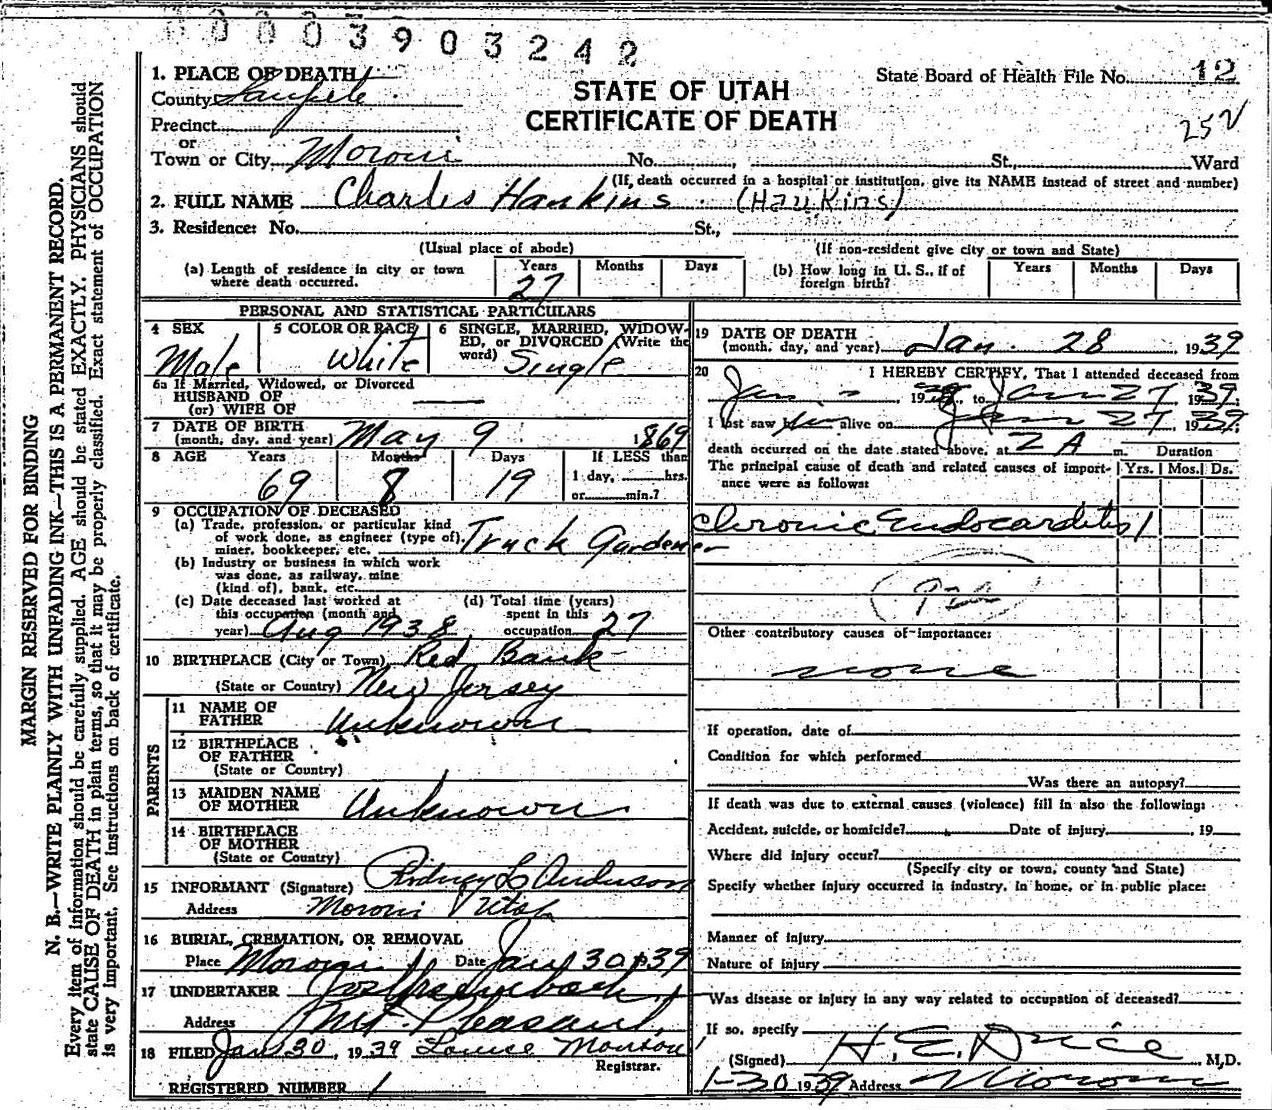 0003903242
1. PLACE OF DEATH
County Sanpete
STATE OF UTAH
CERTIFICATE OF DEATH
State Board of Health File No. 12
252
Precinct
or
Town or City Moroni No. St., Ward
(If death occurred in a hospital or institution, give its NAME instead of street and number)
2. FULL NAME Charles Hankins (Hankins)
3. Residence: No. St.,
(Usual place of abode) (If non-resident give city or town and State)
(a) Length of residence in city or town where death occurred. Years 27 Months Days
(b) How long in U. S., if of foreign birth? Years Months Days
PERSONAL AND STATISTICAL PARTICULARS
4 SEX Male
5 COLOR OR RACE White
6 SINGLE, MARRIED, WIDOWED, OR DIVORCED (Write the word) Single
6a If Married, Widowed, or Divorced
HUSBAND OF
(or) WIFE OF
7 DATE OF BIRTH
(month, day, and year) May 9 1869
8 AGE Years 69 Months 8 Days 19 If LESS than
1 day, hrs.
or min.?
9 OCCUPATION OF DECEASED
(a) Trade, profession, or particular kind
of work done, as engineer (type of),
miner, bookkeeper, etc. Truck Gardener
(b) Industry or business in which work
was done, as railway, mine
(kind of), bank, etc.
(c) Date deceased last worked at
this occupation (month and
year) Aug 1938
(d) Total time (years)
spent in this
occupation 27
10 BIRTHPLACE (City or Town) Red Bank
(State or Country) New Jersey
PARENTS
11 NAME OF
FATHER Unknown
12 BIRTHPLACE
OF FATHER
(State or Country)
13 MAIDEN NAME
OF MOTHER Unknown
14 BIRTHPLACE
OF MOTHER
(State or Country)
15 INFORMANT (Signature) Rodney L Anderson
Address Moroni Utah
16 BURIAL, CREMATION, OR REMOVAL
Place Moroni Date Jan 30 1939
17 UNDERTAKER
Address Mt. Pleasant,
18 FILED Jan 30, 1939 Louise Monson
Registrar.
REGISTERED NUMBER 1
19 DATE OF DEATH
(month, day, and year) Jan. 28, 1939
20 I HEREBY CERTIFY, That I attended deceased from
Jan , 19 , to Jan 27 1939
I last saw him alive on Jan 27 1939;
death occurred on the date stated above, at 2 A m.
The principal cause of death and related causes of importance were as follows:
Duration
Yrs. Mos. Ds.
Chronic Endocarditis 1
Other contributory causes of importance:
none
If operation, date of
Condition for which performed
Was there an autopsy?
If death was due to external causes (violence) fill in also the following:
Accident, suicide, or homicide? Date of injury , 19
Where did injury occur?
(Specify city or town, county and State)
Specify whether injury occurred in industry, in home, or in public place:
Manner of injury
Nature of injury
Was disease or injury in any way related to occupation of deceased?
If so, specify
(Signed) H. E. Dice M.D.
1-30 1939 Address Moroni
MARGIN RESERVED FOR BINDING
N. B.—WRITE PLAINLY WITH UNFADING INK—THIS IS A PERMANENT RECORD.
Every item of information should be carefully supplied. AGE should be stated EXACTLY. PHYSICIANS should
state CAUSE OF DEATH in plain terms, so that it may be properly classified. Exact statement of OCCUPATION
is very important. See instructions on back of certificate.